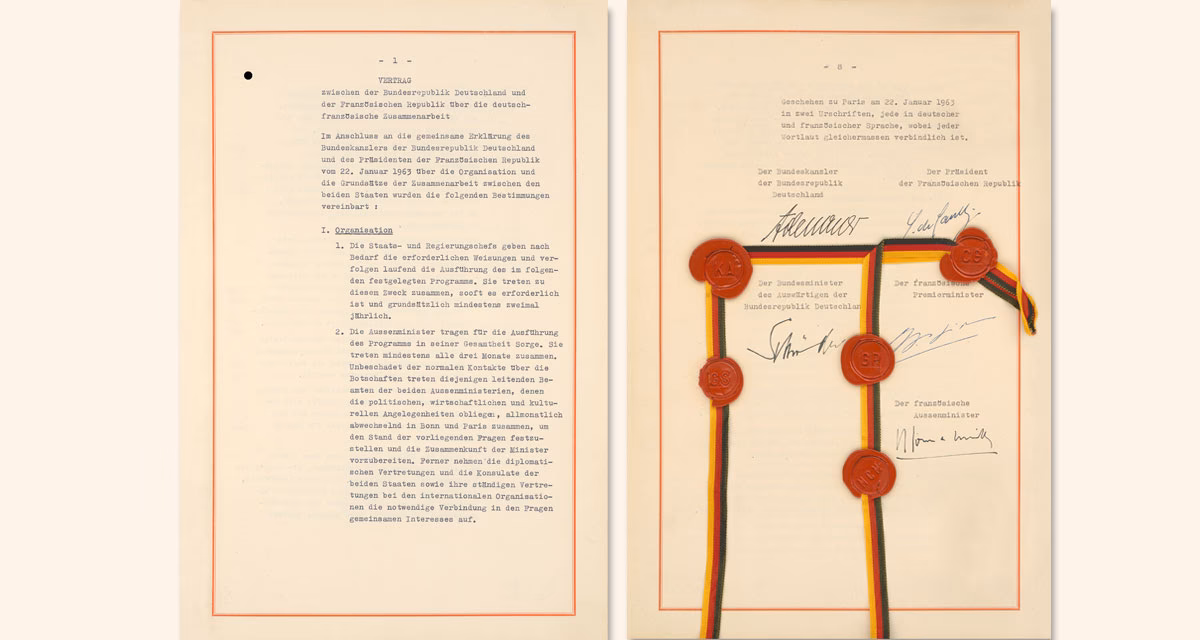 - 1 -
VERTRAG
zwischen der Bundesrepublik Deutschland und
der Französischen Republik über die deutsch-
französische Zusammenarbeit
Im Anschluss an die gemeinsame Erklärung des
Bundeskanzlers der Bundesrepublik Deutschland
und des Präsidenten der Französischen Republik
vom 22. Januar 1963 über die Organisation und
die Grundsätze der Zusammenarbeit zwischen den
beiden Staaten wurden die folgenden Bestimmungen
vereinbart :
I. Organisation
1. Die Staats- und Regierungschefs geben nach
Bedarf die erforderlichen Weisungen und ver-
folgen laufend die Ausführung des im folgen-
den festgelegten Programms. Sie treten zu
diesem Zweck zusammen, sooft es erforderlich
ist und grundsätzlich mindestens zweimal
jährlich.
2. Die Aussenminister tragen für die Ausführung
des Programms in seiner Gesamtheit Sorge. Sie
treten mindestens alle drei Monate zusammen.
Unbeschadet der normalen Kontakte über die
Botschaften treten diejenigen leitenden Be-
amten der beiden Aussenministerien, denen
die politischen, wirtschaftlichen und kultu-
rellen Angelegenheiten obliegen, allmonatlich
abwechselnd in Bonn und Paris zusammen, um
den Stand der vorliegenden Fragen festzu-
stellen und die Zusammenkunft der Minister
vorzubereiten. Ferner nehmen die diplomati-
schen Vertretungen und die Konsulate der
beiden Staaten sowie ihre ständigen Vertre-
tungen bei den internationalen Organisatio-
nen die notwendige Verbindung in den Fragen
gemeinsamen Interesses auf.
- 8 -
Geschehen zu Paris am 22. Januar 1963
in zwei Urschriften, jede in deutscher
und französischer Sprache, wobei jeder
Wortlaut gleichermassen verbindlich ist.
Der Bundeskanzler
der Bundesrepublik
Deutschland
Der Präsident
der Französischen Republik
Adenauer
Der Bundesminister
des Auswärtigen der
Bundesrepublik Deutschlan
Der französische
Premierminister
Schröder
SR
Der französische
Aussenminister